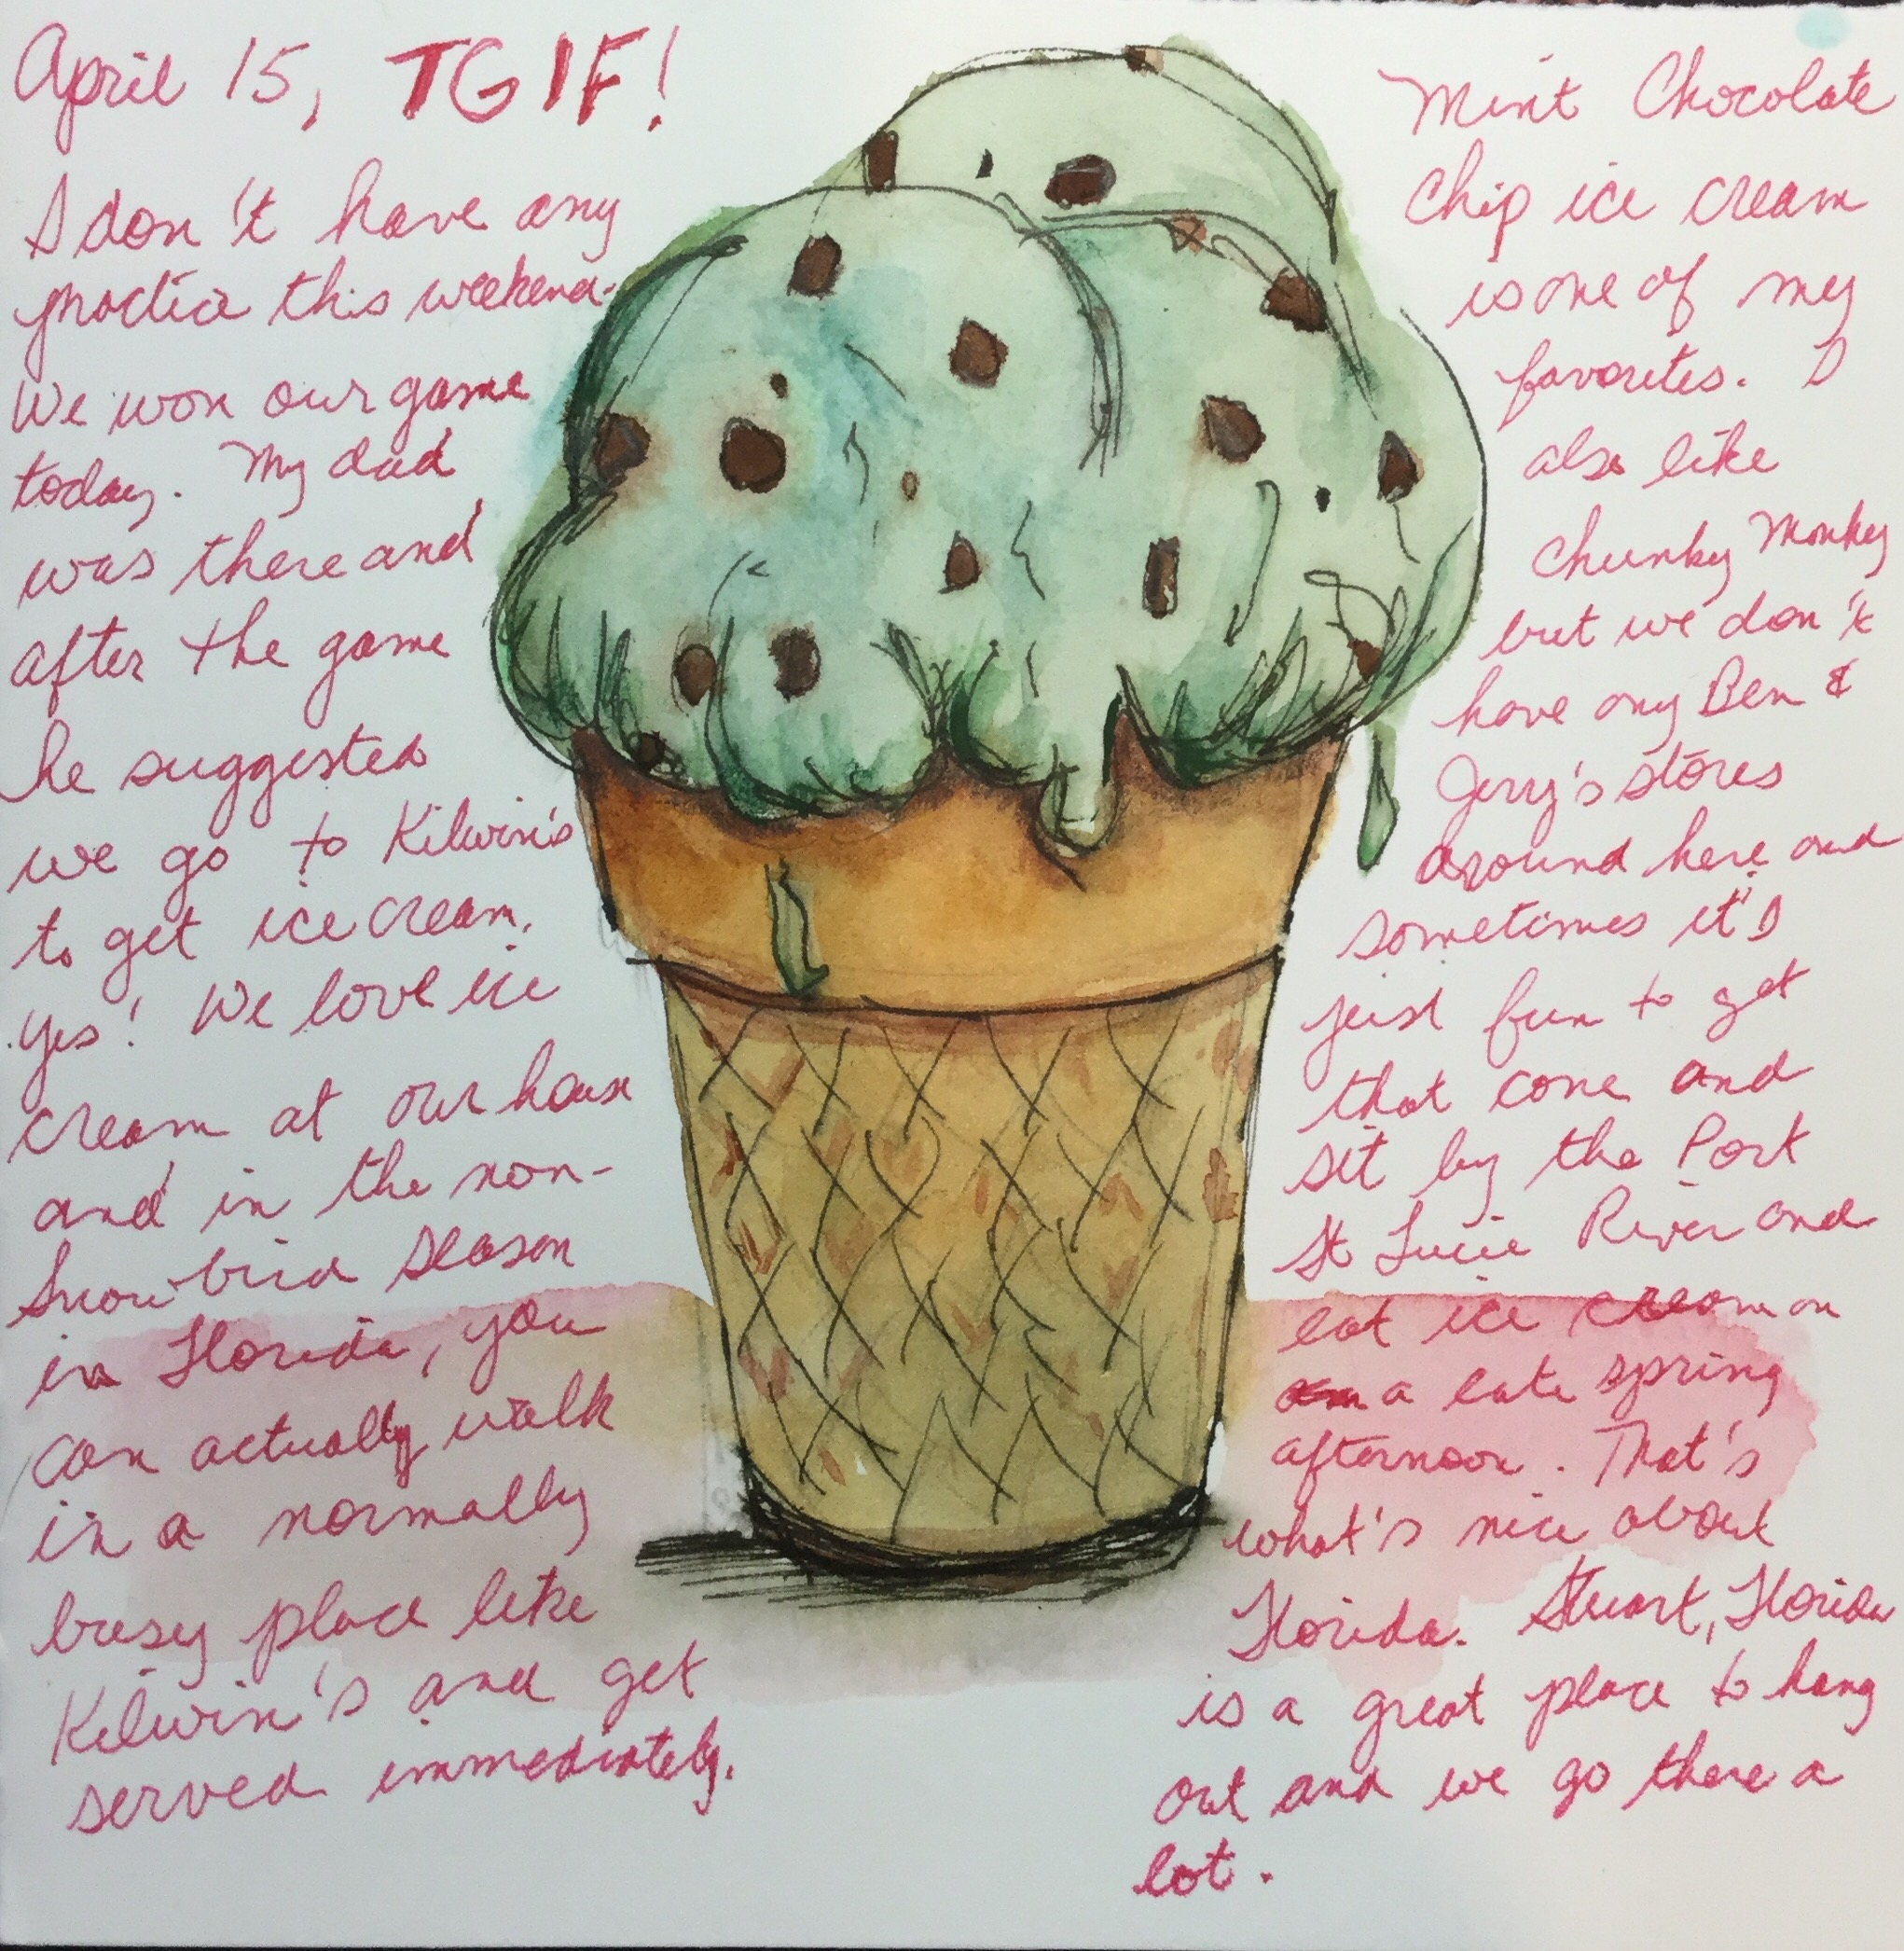 April 15, TGIF!
I don't have any
practice this weekend.
We won our game
today. My dad
was there and
after the game
he suggested
we go to Kilwin's
to get ice cream.
Yes! We love ice
cream at our house
and in the non-
snowbird season
in Florida, you
can actually walk
in a normally
busy place like
Kilwin's and get
served immediately.
Mint Chocolate
Chip ice cream
is one of my
favorites. I
also like
Chunky Monkey
but we don't
have any Ben &
Jerry's stores
around here and
sometimes it's
just fun to get
that cone and
sit by the Port
St Lucie River and
eat ice cream on
a late spring
afternoon. That's
what's nice about
Florida. Stuart, Florida
is a great place to hang
out and we go there a
lot.